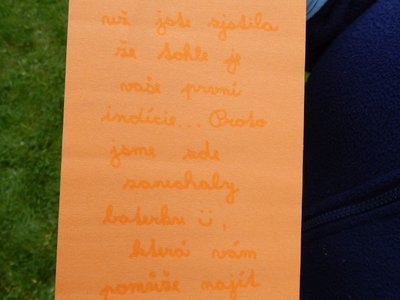 než jste zjistila
že tohle je
vaše první
indície... Proto
jsme zde
zanechaly
baterku ☺,
která vám
pomůže najít